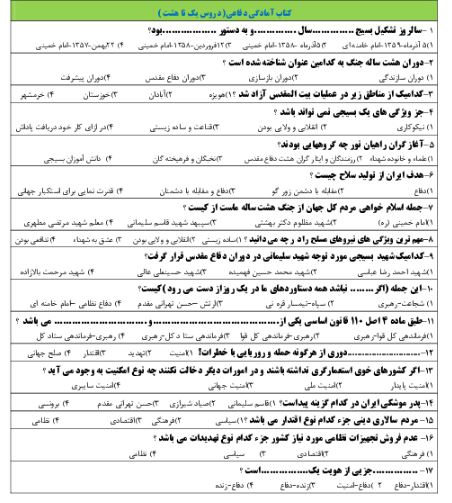 کتاب آمادگی دفاعی(دروس یک تا هشت)
۱-سالروز تشکیل بسیج ..............سال ............و به دستور ..................بود؟
۱)۵آذرماه-۱۳۵۹-امام خامنه ای ۲)۵آذرماه -۱۳۵۸-امام خمینی ۳)۱۲فروردین-۱۳۵۸-امام خمینی ۴) ۲۲بهمن-۱۳۵۷-امام خمینی
۲-دوران هشت ساله جنگ به کدامین عنوان شناخته شده است ؟
۱) دوران سازندگی ۲)دوران بازسازی ۳)دوران دفاع مقدس ۴)دوران پیشرفت
۳-کدامیک از مناطق زیر در عملیات بیت المقدس آزاد شد ؟ ۱)هویزه ۲)آبادان ۳)خوزستان ۴) خرمشهر
۴-جز ویژگی های یک بسیجی نمی تواند باشد ؟
۱) نیکوکاری ۲) انقلابی و ولایی بودن ۳)قناعت و ساده زیستی ۴)در ازای کار خود دریافت پاداش
۵-آغاز گران راهیان نور چه گروههایی بودند؟
۱)علماء و خانوده شهداء ۲)رزمندگان و ایثار گران هشت دفاع مقدس ۳)نخبگان و فرهیخته گان ۴) دانش آموزان بسیجی
۶-هدف ایران از تولید سلاح چیست ؟
۱)دفاع ۲)مقابله با دشمن زور گو ۳)دفاع و مقابله با دشمنان ۴) قدرت نمایی برای استکبار جهانی
۷-جمله اسلام خواهی مردم کل جهان از جنگ هشت ساله ماست از کیست ؟
۱)امام خمینی (ره) ۲)شهید مظلوم دکتر بهشتی ۳)سپهبد شهید قاسم سلیمانی ۴) معلم شهید مرتضی مطهری
۸-مهم ترین ویژگی های نیروهای مسلح را در چه می دانید ؟ ۱)ساده زیستی ۲)انقلابی و ولایی بودن ۳) عشق به شهداء ۴)تدافعی بودن
۹-کدامیک شهید بسیجی مورد توجه شهید سلیمانی در دوران دفاع مقدس قرار گرفت؟
۱)شهید احمد رضا عباسی ۲)شهید محمد حسین فهمیده ۳)شهید حسینعلی عالی ۴) شهید مرحمت بالازاده
۱۰-این جمله (اگر ........ نباشد همه دستاوردهای ما در یک روز از دست می رود )کیست؟
۱)شجاعت-رهبری ۲)سپاه-تیمسار قره نی ۳)ارتش -حسن تهرانی مقدم ۴) دفاع نظامی -امام خامنه ای
۱۱-طبق ماده ۴اصل ۱۱۰ قانون اساسی یکی از........................................و ........................ می باشد ؟
۱)فرماندهی کل قوا-رهبری ۲)رهبری-فرماندهی کل قوا ۳)فرماندهی ستاد کل-رهبری ۴) رهبری-فرماندهی ستاد کل
۱۲-........................دوری از هرگونه حمله و رورپایی با خطرات؟ ۱)امنیت ۲)تهدید ۳)اقتدار ۴) صلح جهانی
۱۳-اگر کشورهای خوی استعمارگری نداشته باشند و در امورات دیگر دخالت نکنند چه نوع امنیت به وجود می آید ؟
۱)امنیت پایدار ۲)امنیت ملی ۳)امنیت جهانی ۴)امنیت سایبری
۱۴-پدر موشکی ایران در کدام گزینه پیداست؟ ۱)قاسم سلیمانی ۲)صیاد شیرازی ۳)حسن تهرانی مقدم ۴) برونسی
۱۵-مردم سالاری دینی جزء کدام نوع اقتدار می باشد ؟ ۱)سیاسی ۲)فرهنگی ۳)اقتصادی ۴) نظامی
۱۶-عدم فروش تجهیزات نظامی مورد نیاز کشور جزء کدام نوع تهدیدات می باشد ؟
۱)فرهنگی ۲)اقتصادی ۳) سیاسی ۴) نظامی
۱۷-...............جزیی از هویت یک...............است؟
۱)اقتدار-دفاع ۲)دفاع-امنیت ۳)زنده-دفاع ۴)دفاع-زنده